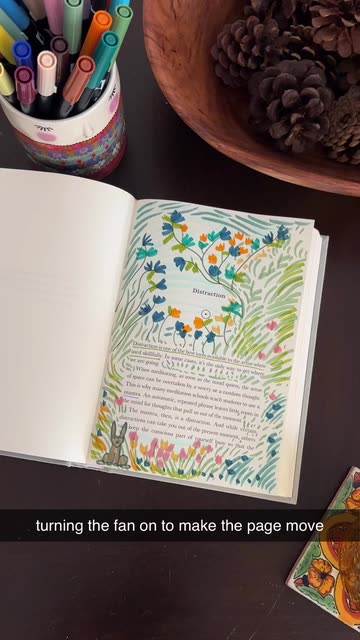 Distraction
Distraction is one of the best tools available to the artist when
used skillfully. In some cases, it's the only way to get where
we are going.
When meditating, as soon as the mind quiets, the sense
of space can be overtaken by a worry or a random thought.
This is why many meditation schools teach students to use a
mantra. An automatic, repeated phrase leaves little room in
the mind for thoughts that pull us out of the moment.
The mantra, then, is a distraction. And while certain
distractions can take you out of the present moment, others
keep the conscious part of yourself busy so that the
turning the fan on to make the page move